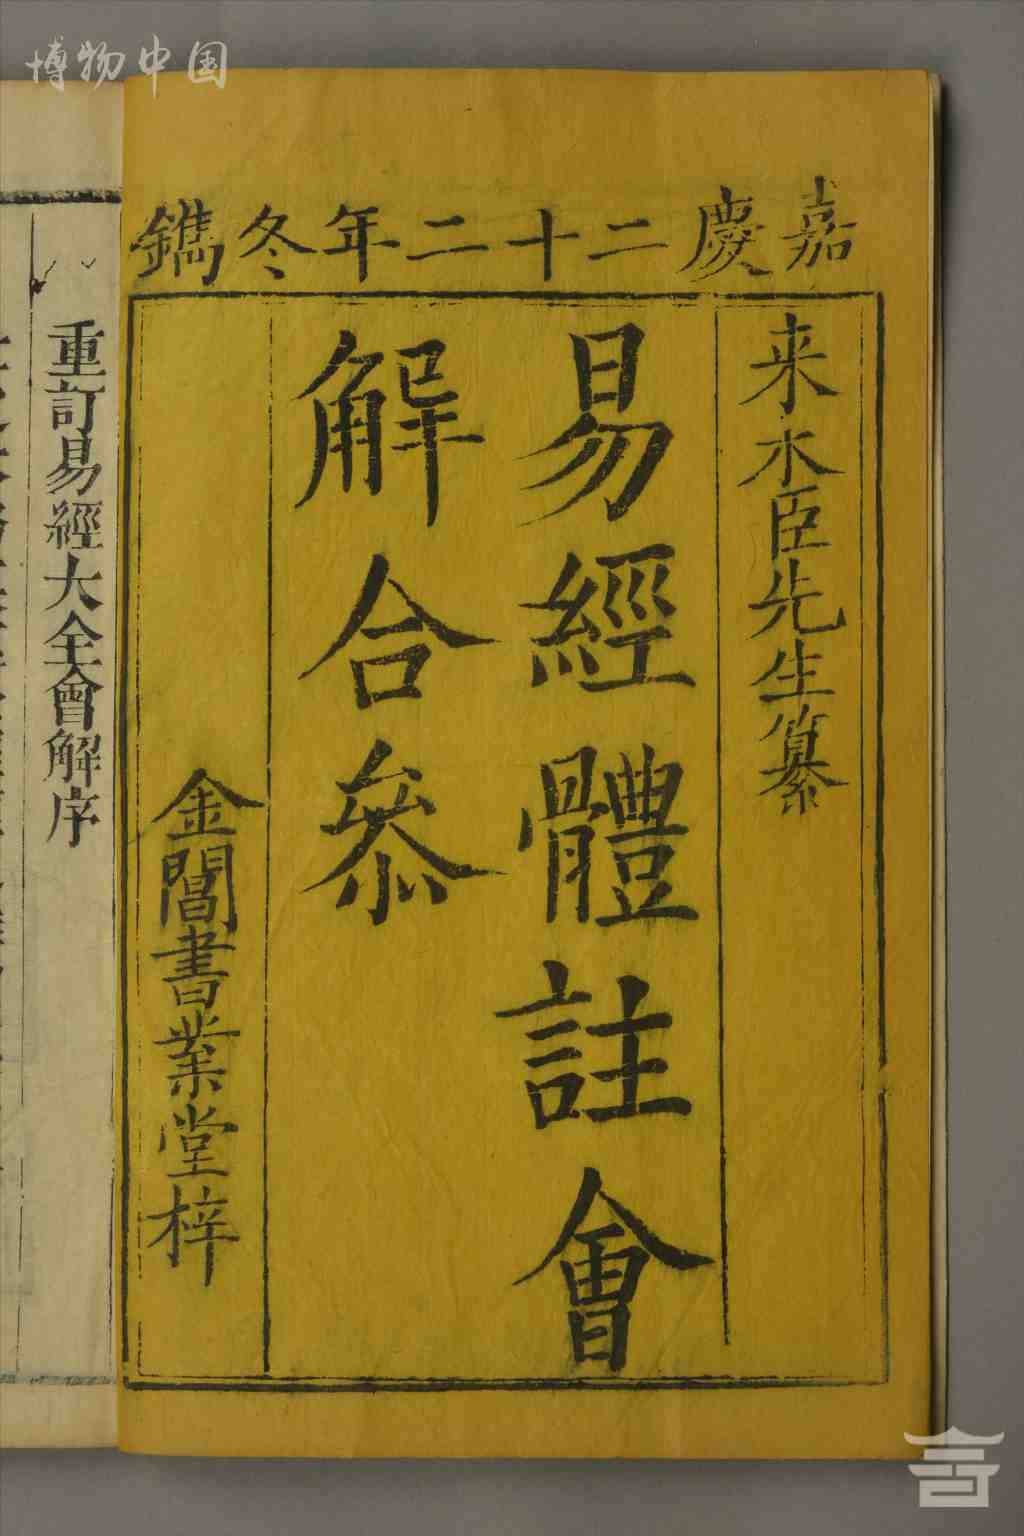 博物中国
嘉慶二十二年冬鐫
来木臣先生纂
易經體註會
解合參
金閶書業堂梓
重訂易經大全會解序